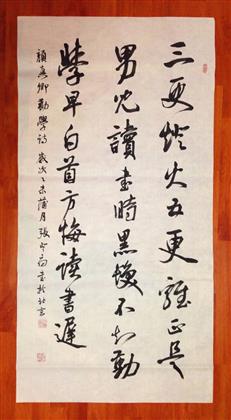 三更燈火五更雞正是
男兒讀書時黑髮不知勤
學早白首方悔讀書遲
顏真卿勸學詩 歲次乙未蒲月 張 書於北京